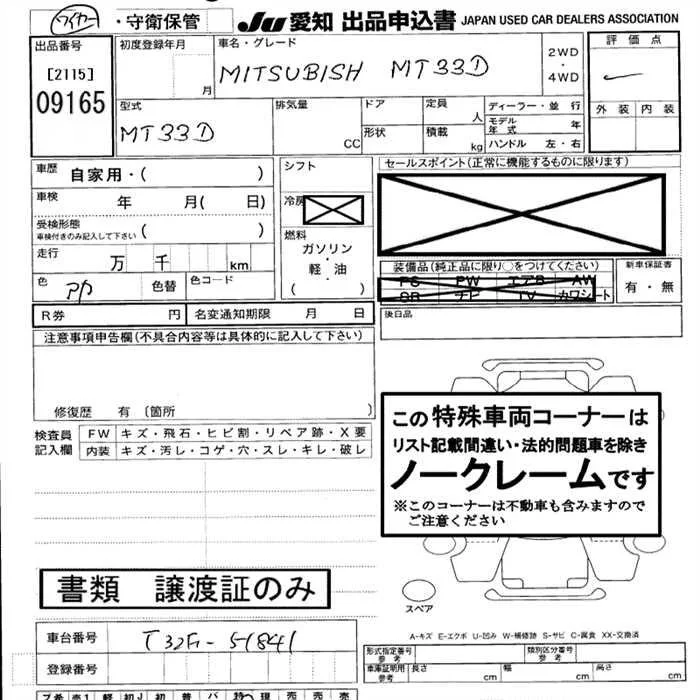 ワイヤー ・守衛保管 JU 愛知 出品申込書 JAPAN USED CAR DEALERS ASSOCIATION
出品番号
[2115]
09165
初度登録年月
月
車名・グレード
MITSUBISH MT33D
2WD
・
4WD
評価点
外装 内装
型式
MT33D
排気量
CC
ドア
形状
定員
人
積載
kg
ディーラー・並 行
モデル年式 年
ハンドル 左・右
車歴 自家用・( )
車検 年 月( 日)
受検形態
車検付きのみ記入して下さい ( )
走行 万 千 km
色 色替 色コード
シフト
冷房
燃料
ガソリン
・
軽・油
( )
セールスポイント(正常に機能するものに限ります)
装備品(純正品に限り○をつけてください)
PS PW エアB AW
SR ナビ TV カワシート
新車保証書
有・無
R券 円 名変通知期限 月 日
後日品
注意事項申告欄(不具合内容等は具体的に記入して下さい)
修復歴 有 〔箇所 〕
検査員
記入欄
FW キズ・飛石・ヒビ割・リペア跡・X要
内装 キズ・汚レ・コゲ・穴・スレ・キレ・破レ
この特殊車両コーナーは
リスト記載間違い・法的問題車を除き
ノークレームです
※このコーナーは不動車も含みますので
ご注意ください
書類 譲渡証のみ
スペア
A-キズ E-エクボ U-凹み W-補修跡 S-サビ C-腐食 XX-交換済
車台番号 T32F-51841
登録番号
形式指定番号
参考
類別区分番号
参考
車庫証明用
参考
長さ cm 幅 cm 高さ cm